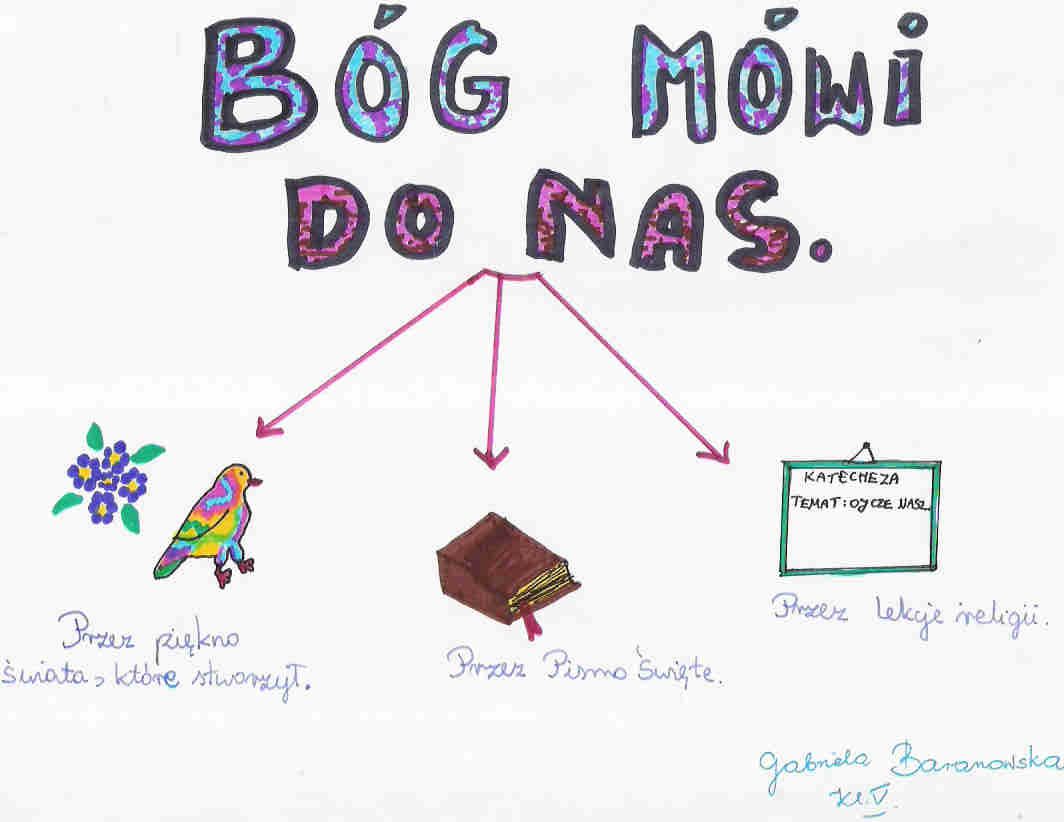 BÓG MÓWI
DO NAS.
KATECHEZA
TEMAT: OJCZE NASZ.
Przez piękno
świata, które stworzył.
Przez Pismo Święte.
Przez lekcje religii.
Gabriela Baranowska
kl. V.